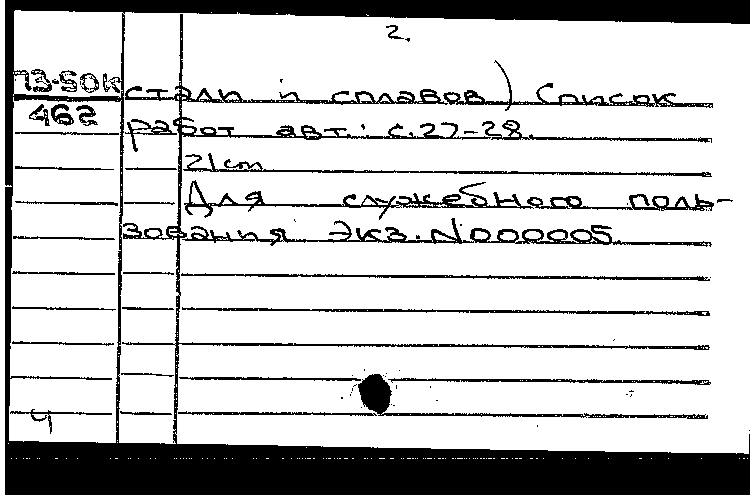 2.
73-50к стали и сплавов) Список
462 работ авт.: с.27-28.
21cm
Для служебного поль-
зования Экз. N000005.
4